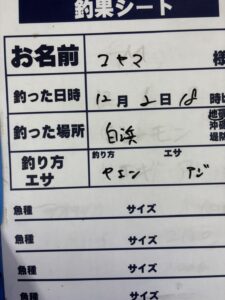 釣果シート
お名前 コヤマ 様
釣った日時 12月2日18時
釣った場所 白浜
釣り方 エサ
釣り方 ヤエン エサ アジ
魚種 サイズ
魚種 サイズ
魚種 サイズ
魚種 サイズ